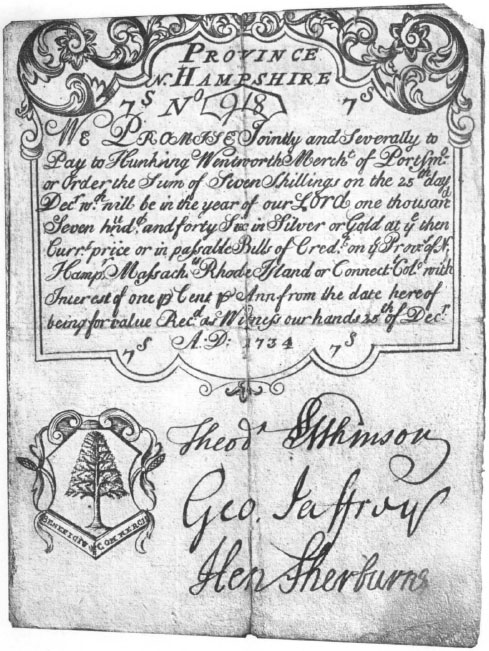 PROVINCE
N. HAMPSHIRE
7S No 918 7S
WE PROMISE Jointly and Severally to
Pay to Hunking Wentworth Mercht of Portsmo
or Order the Sum of Seven Shillings on the 25th day
Decr wch will be in the year of our LORD one thousand
Seven hundd and forty Six in Silver or Gold at ye then
Currt price or in passable Bills of Credt on ye Prove of N
Hamp Massachts Rhode Island or Connect Colo with
Interest of one p Cent p Ann from the date hereof
being for value Recd as Witness our hands 25th of Decr
7S A:D: 1734 7S
Theodr Atkinson
Geo. Jaffrey
Hen Sherburne
BENEFICIO COMMERCII